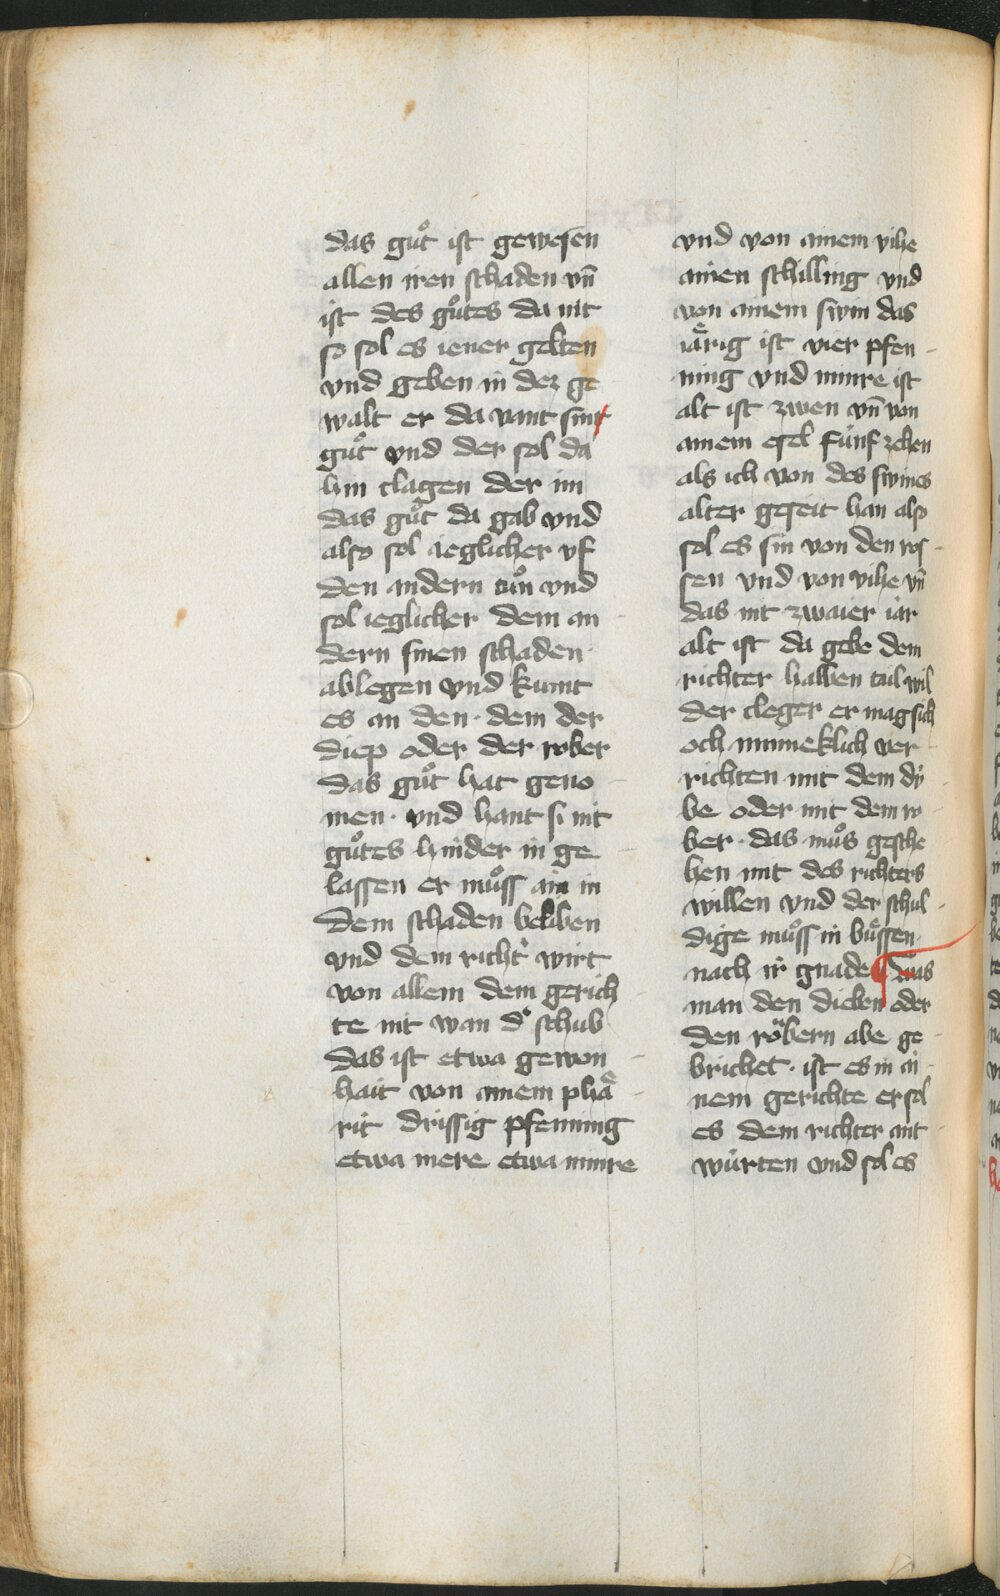 das guͦt ist gewesen
allen iren schaden vn̄
ist des guͦtes da nit
so sol es iener gelten
vnd geben in dez ge
walt er da vant sin
guͦt vnd der sol da
hin clagen der im
das guͦt da gab vnd
also sol ieglicher vf
den andern tuͦn vnd
sol ieglicher dem an
dern sinen schaden
ablegen vnd kumt
es an den · dem der
diep oder der rober
das guͦt hat geno
men · vnd hant si nit
guͦtes hinder in ge
lassen er muͦss ain in
dem schaden beliben
vnd dem richt' wirt
von allem dem gerich
te nit wan d' schub
das ist etwa gewon
hait von ainem phaͤ
rit drissig pfenning
etwa mere etwa minre
vnd von ainem vihe
ainen schilling vnd
von ainem swin das
iaͤrig ist vier pfen
ning vnd minre ist
alt ist zwen vn̄ von
ainem esel fúnfzehen
als ich von des swines
alter geseit han also
sol es sin von den ros
sen vnd von vihe vn̄
das nit zwaier iar
alt ist da gebe dem
richter halben tail wil
der cleger er mag sich
och minneklich ver
richten mit dem dy
be oder mit dem ro
ber · das muͦs gesche
hen mit des richters
willen vnd der schul
dige muͦss in buͤssen
nach ir gnade ¶ Was
man den dieben oder
den roͤbern abe ge
brichet · ist es in ai
nem gerichte er sol
es dem richter ant
wúrten vnd sol es